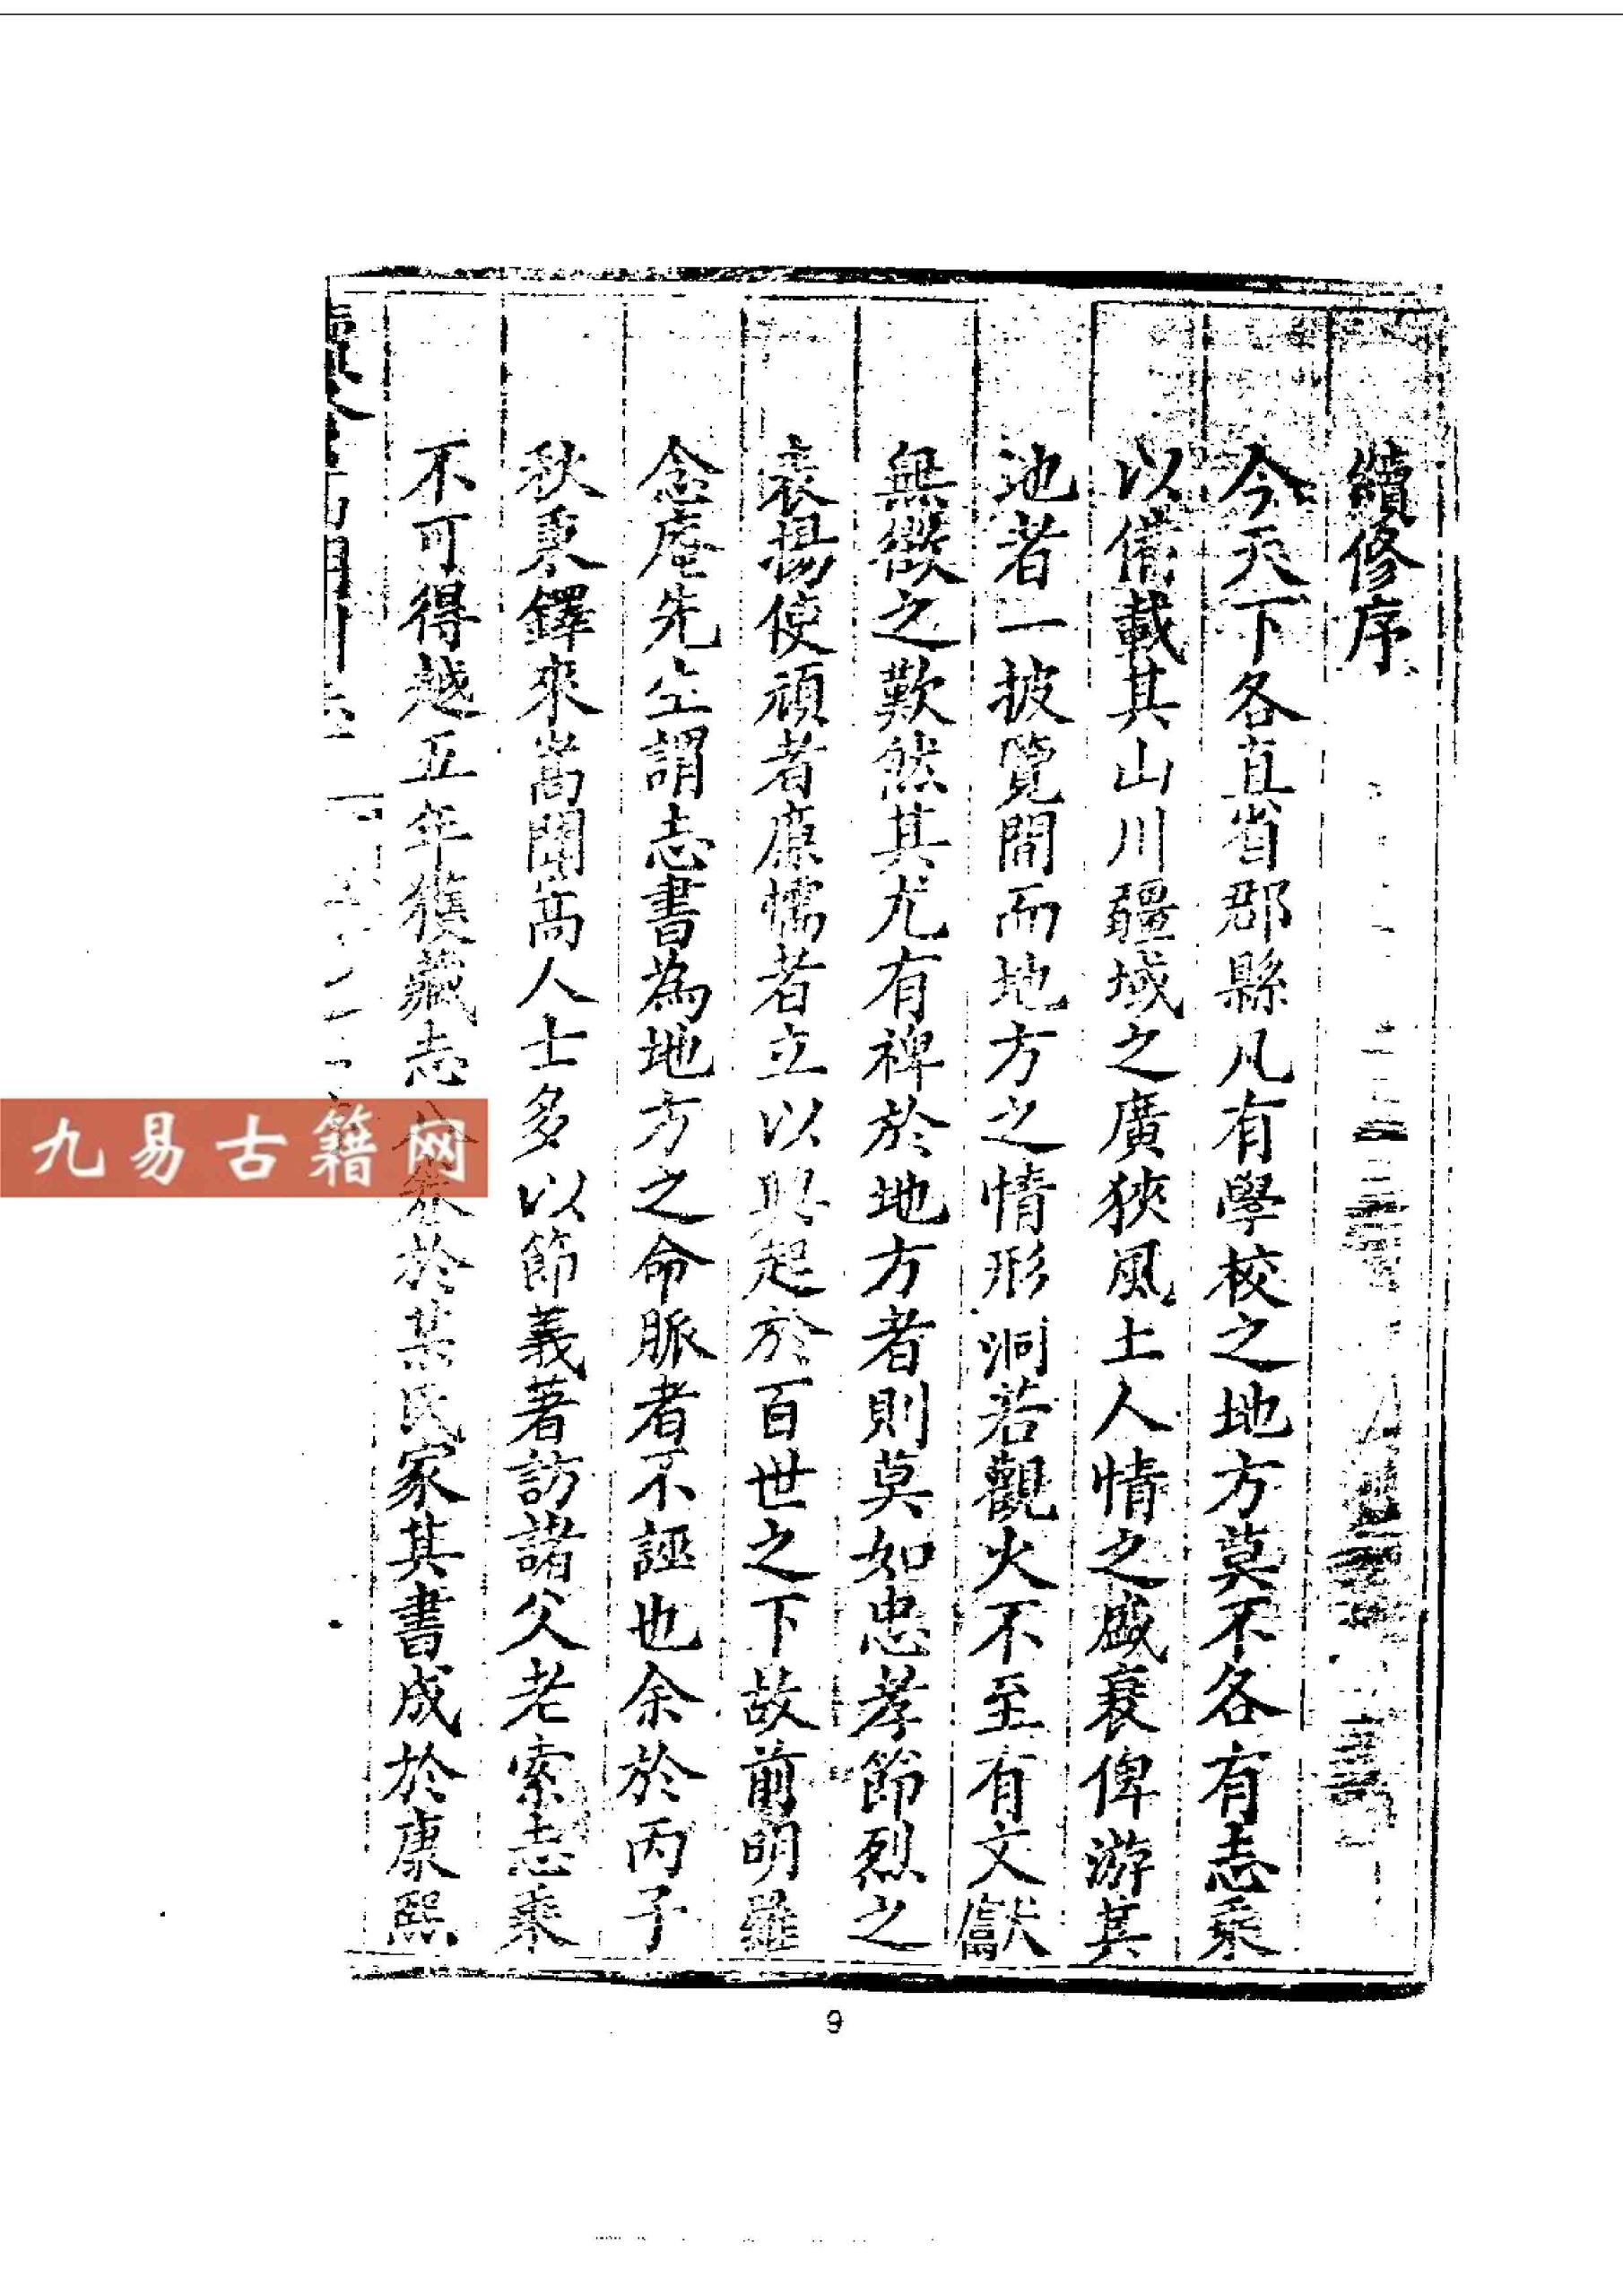 續修序
今天下各直省郡縣凡有學校之地方莫不各有志乘
以備載其山川疆域之廣狹風土人情之盛衰俾游其
池者一披覽間而地方之情形洞若觀火不至有文獻
無徵之歎然其尤有裨於地方者則莫如忠孝節烈之
表揚使頑者廉懦者立以興起於百世之下故前明羅
念庵先生謂志書為地方之命脈者不誣也余於丙子
秋秉鐸來嵩聞嵩人士多以節義著訪諸父老索志乘
不可得越五年獲藏志於某氏家其書成於康熙
九易古籍网
9